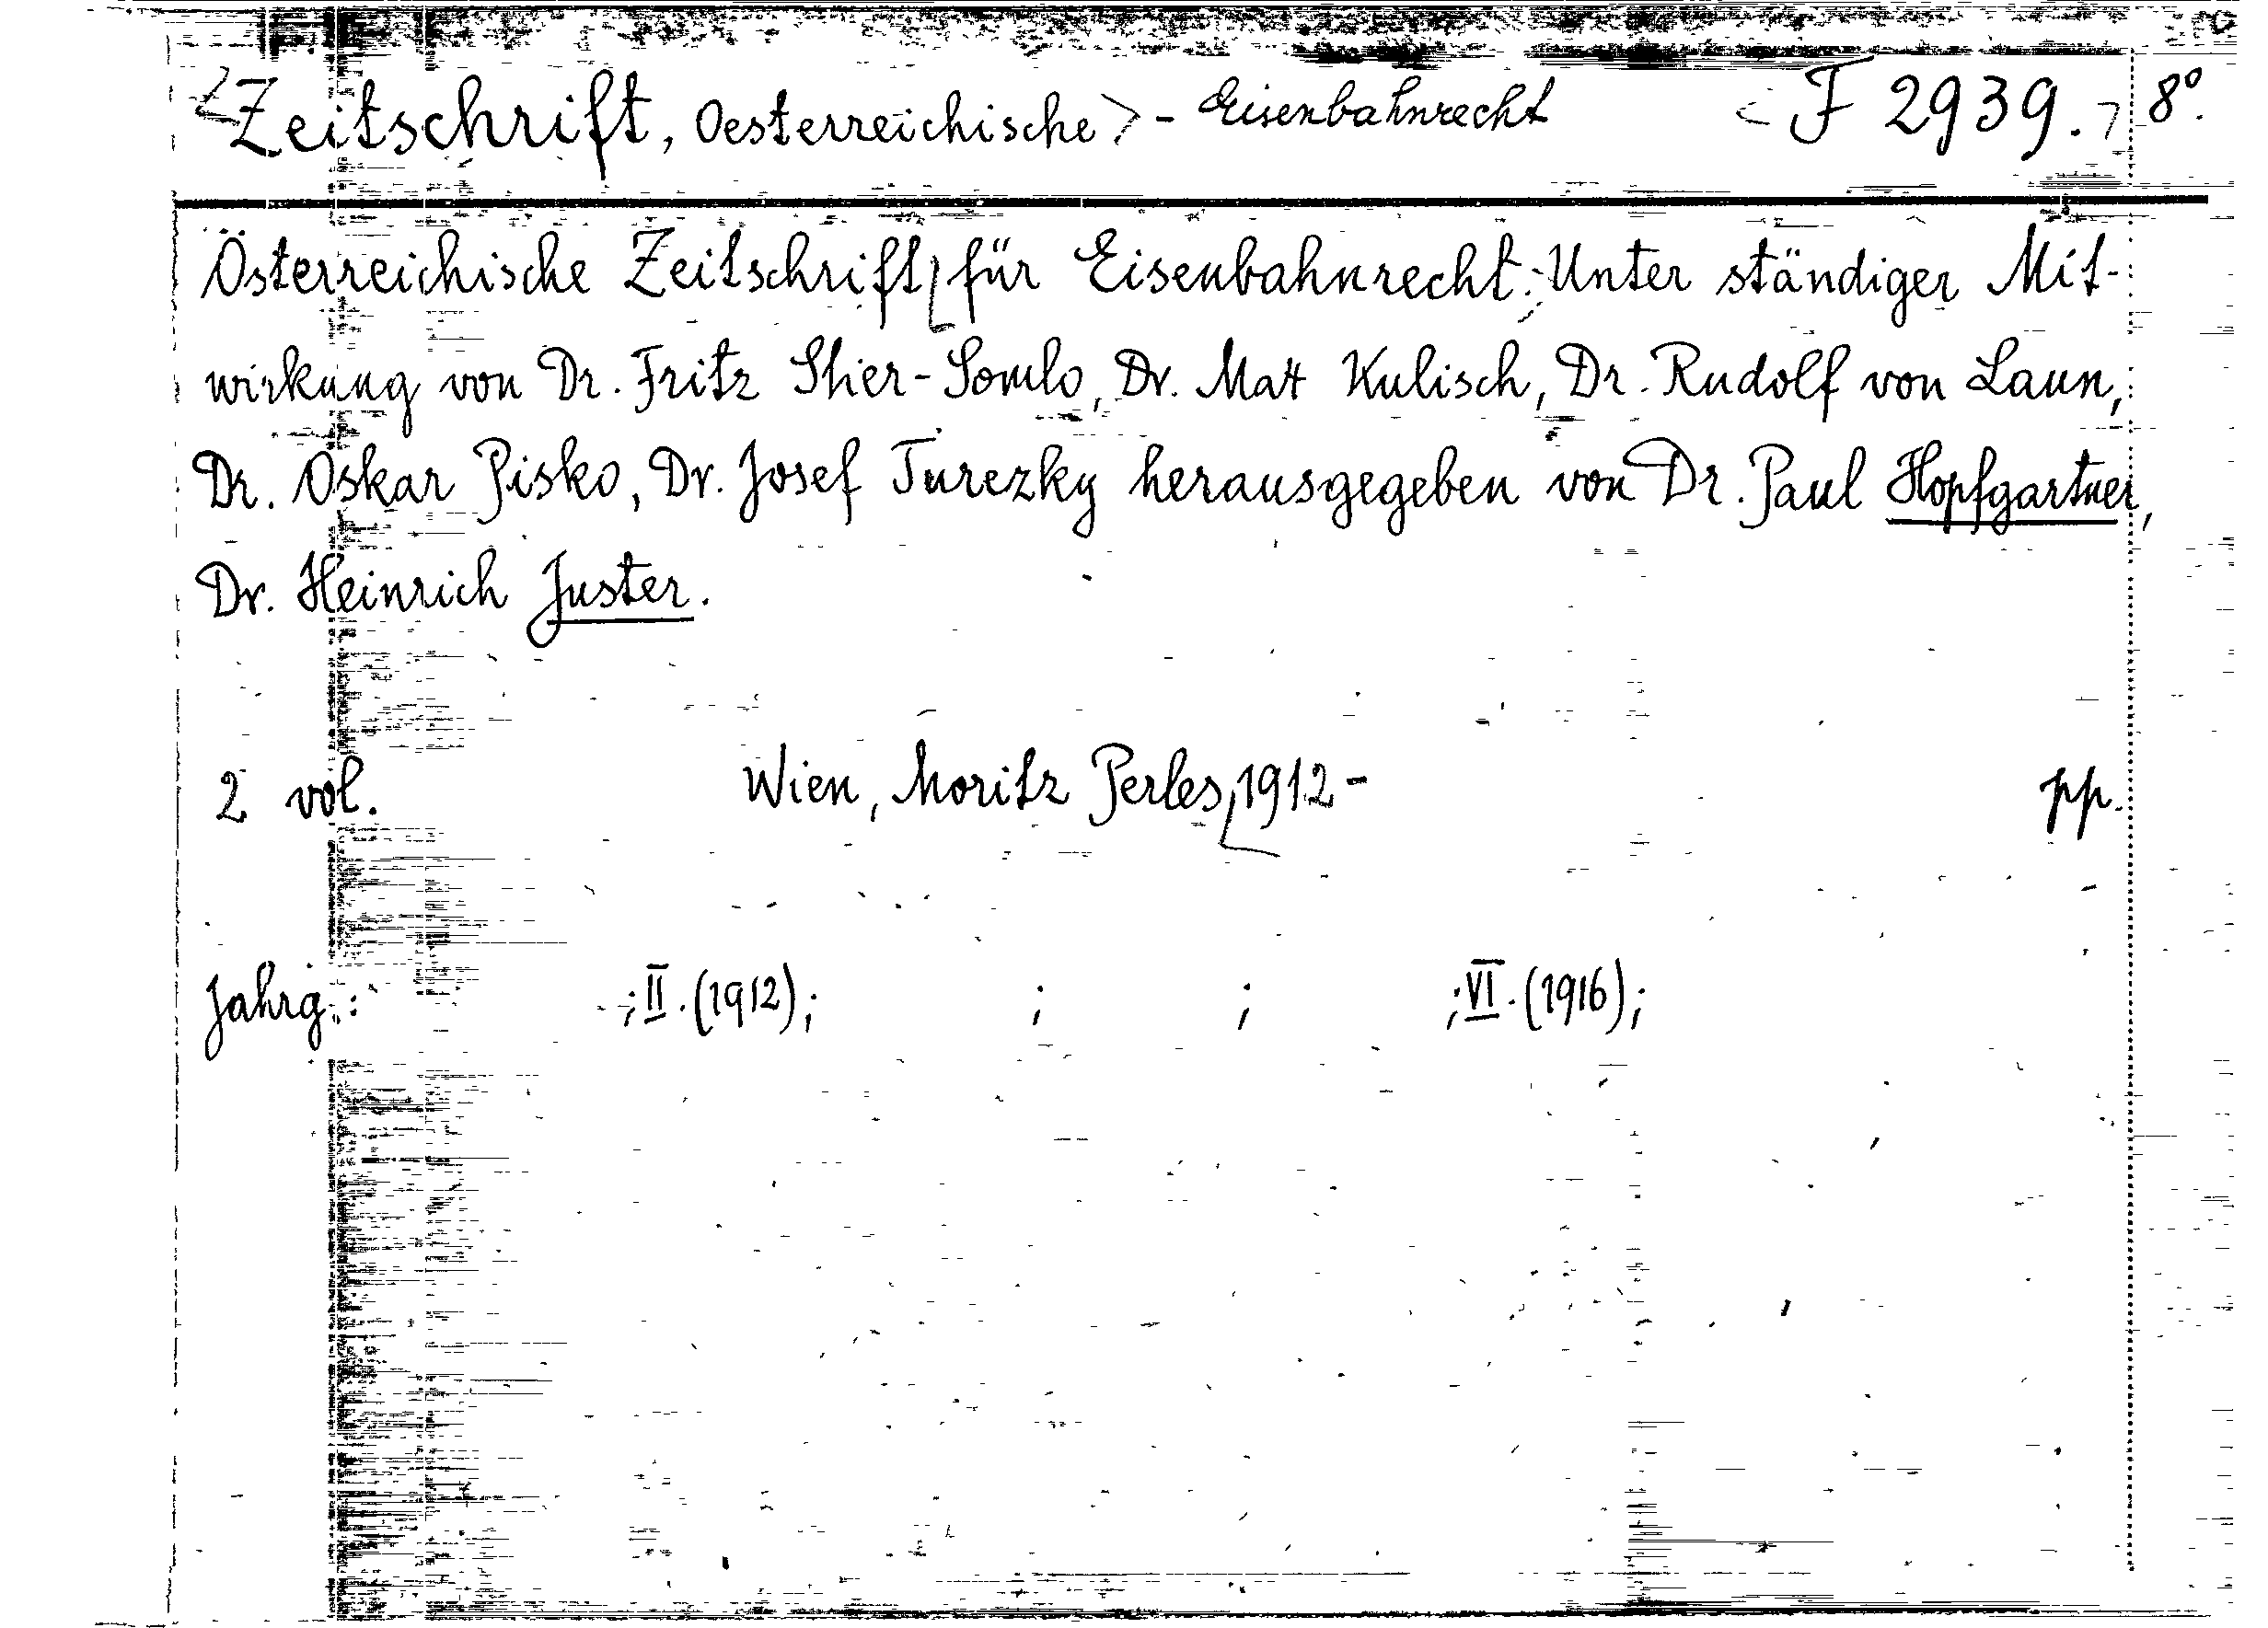 <Zeitschrift, Oesterreichische> - Eisenbahnrecht <F 2939.> 8º.
Österreichische Zeitschrift für Eisenbahnrecht. Unter ständiger Mit-
wirkung von Dr. Fritz Stier-Somlo, Dr. Max Kulisch, Dr. Rudolf von Laun,
Dr. Oskar Pisko, Dr. Josef Turezky herausgegeben von Dr. Paul Hopfgartner,
Dr. Heinrich Juster.
2 vol. Wien, Moritz Perles, 1912- pp.
Jahrg.: ; II. (1912); ; ; ; VI. (1916);